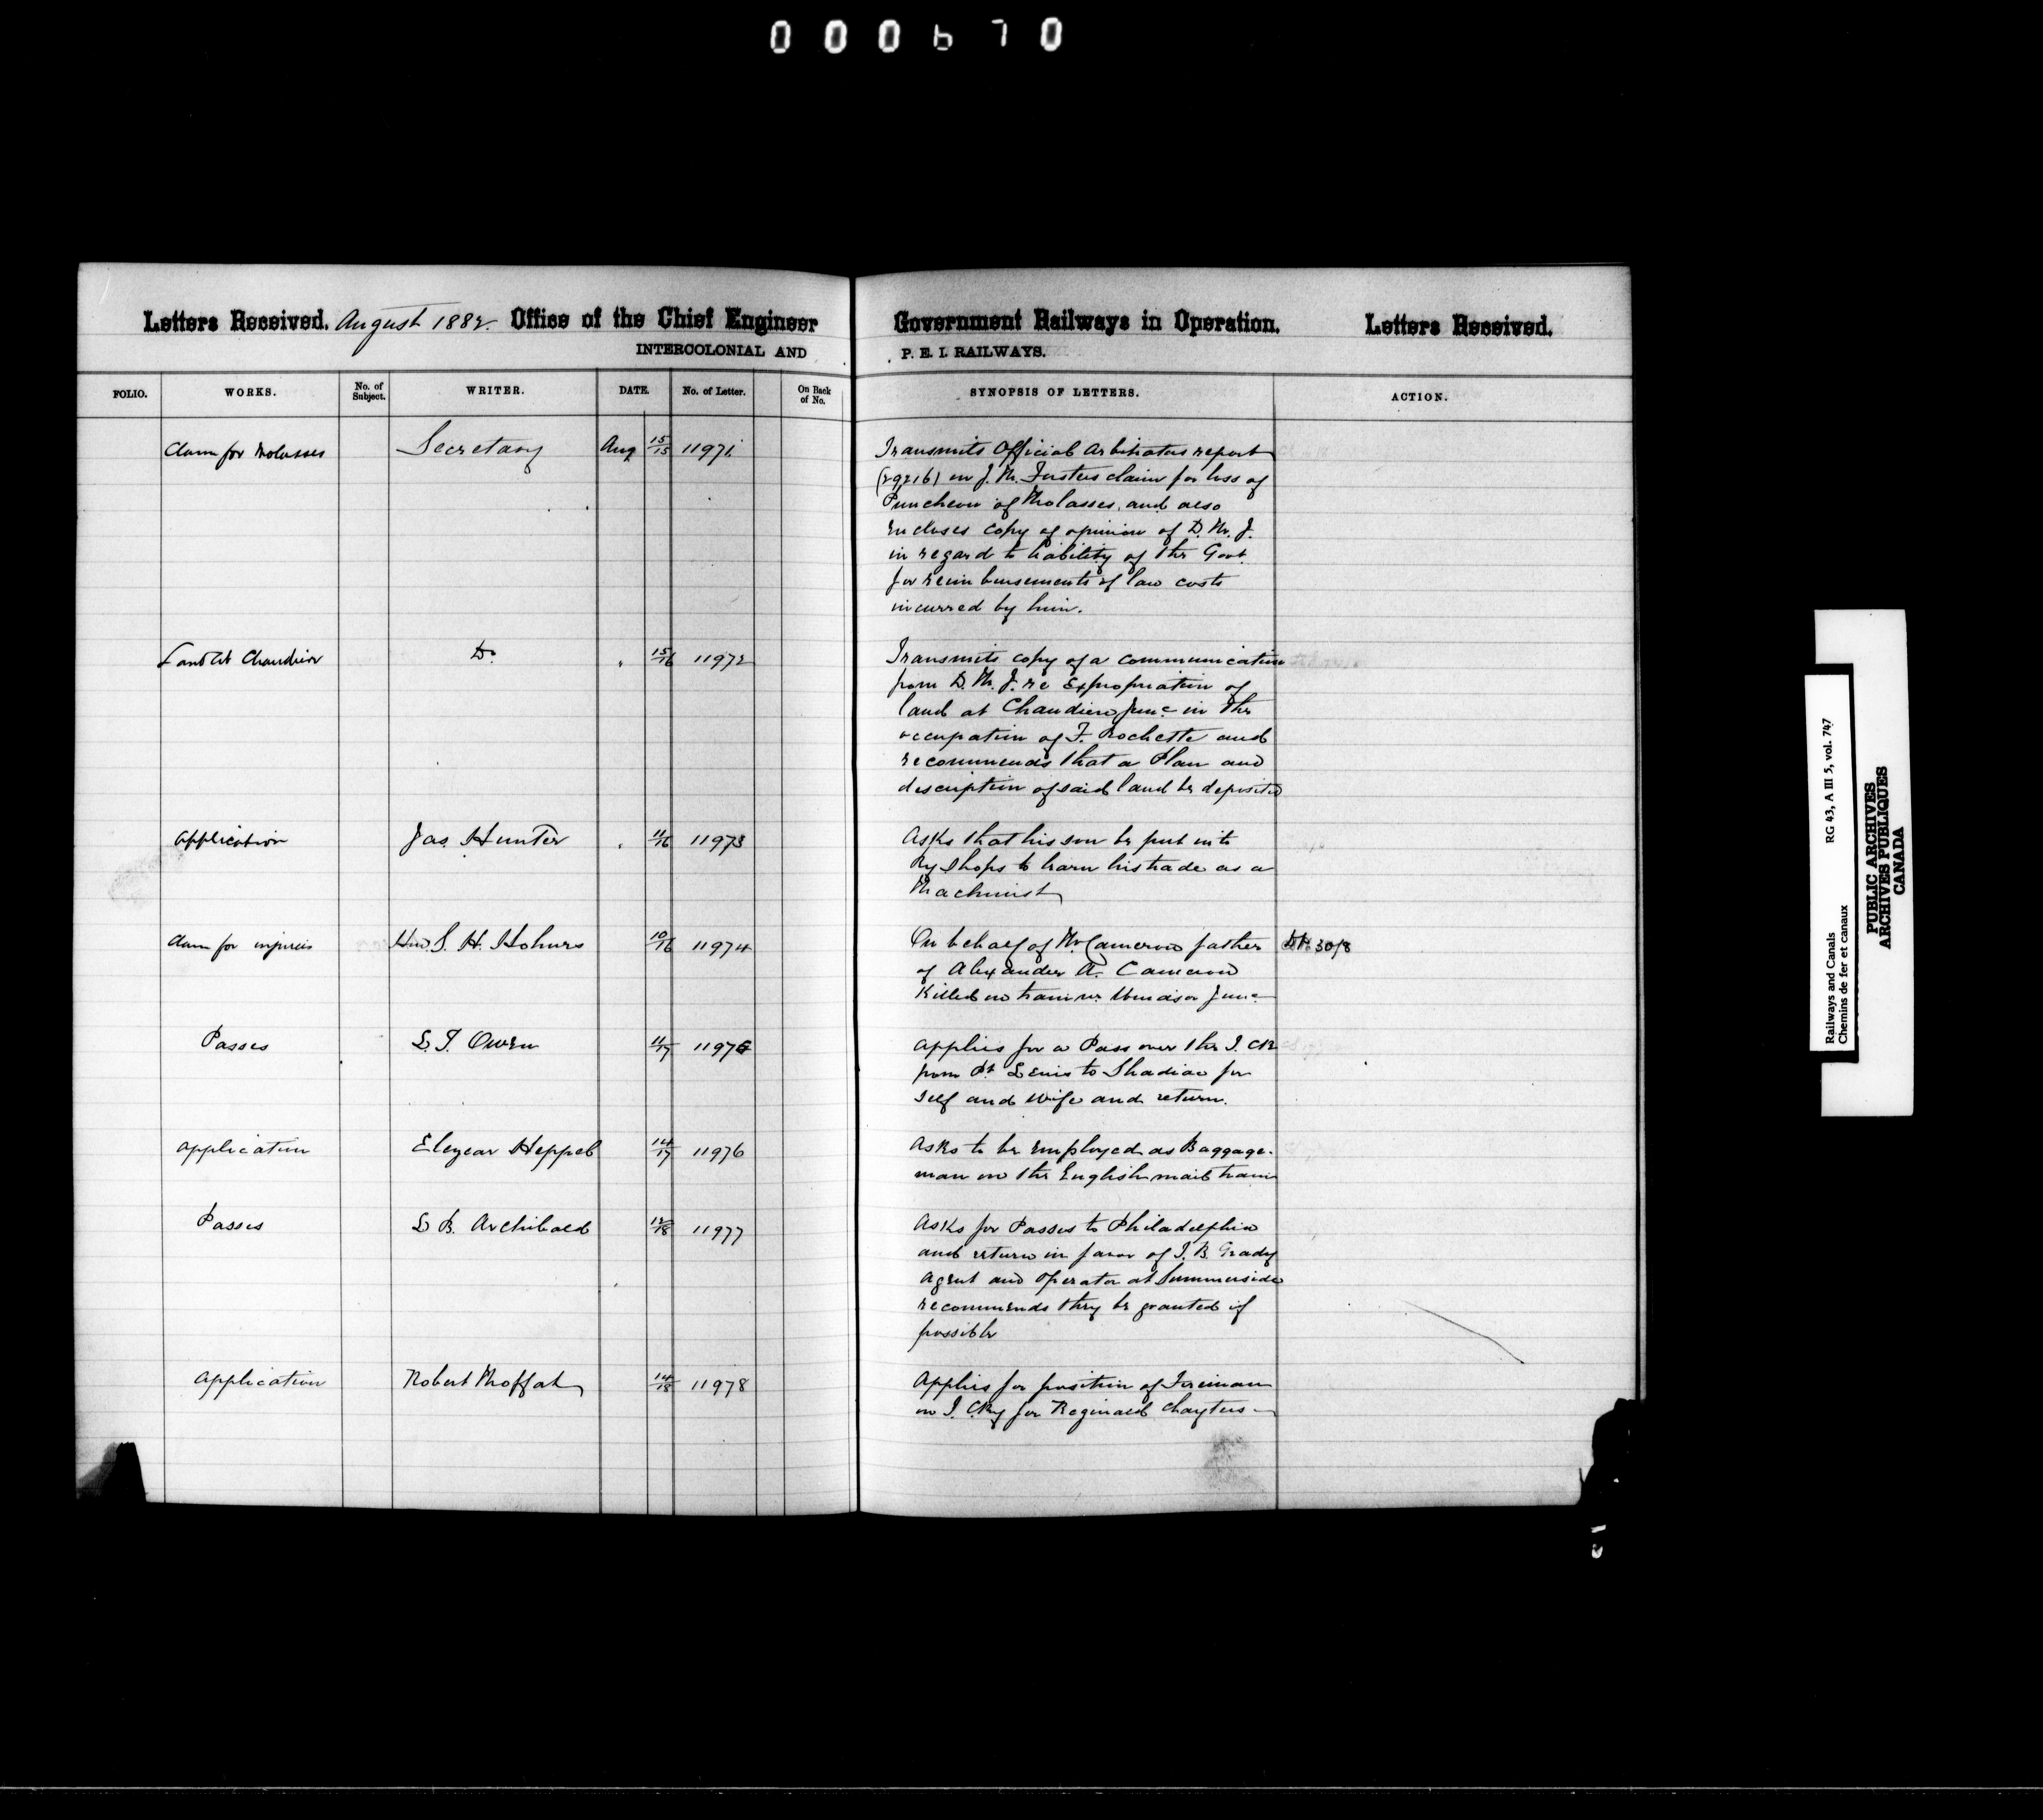 000670
Letters Received. August 1882. Office of the Chief Engineer Government Railways in Operation. Letters Received.
INTERCOLONIAL AND P. E. I. RAILWAYS.
FOLIO. WORKS. No. of Subject. WRITER. DATE. No. of Letter. On Back of No. SYNOPSIS OF LETTERS. ACTION.
Claim for Molasses Secretary Aug 15/15 11971 Transmits Official Arbitrators report
(29216) on J. M. Fosters claim for loss of
Puncheon of Molasses, and also
Encloses copy of opinion of D. M. J.
in regard to liability of the Govt
for reimbursements of law costs
incurred by him.
Land at Chaudiere Do. " 15/16 11972 Transmits copy of a communication
from D. M. J. re Expropriation of
land at Chaudiere Junc in the
occupation of F. Rochette and
recommends that a Plan and
description of said land be deposited
Application Jas. Hunter " 11/16 11973 Asks that his son be put into
Ry Shops to learn his trade as a
Machinist
Claim for injuries Hon. S. H. Holmes 10/16 11974 On behalf of Mr Cameron father
of Alexander A. Cameron
Killed on train nr. Windsor Junc 30/8
Passes L. T. Owen 11/17 11975 Applies for a Pass over the I. C R
from Pt. Levis to Shediac for
self and wife and return.
Application Elezear Heppel 14/17 11976 Asks to be employed as Baggage-
man on the English mail train
Passes L. B. Archibald 12/18 11977 Asks for Passes to Philadelphia
and return in favor of J. B. Grady
Agent and Operator at Summerside
recommends they be granted if
possible
Application Robert Moffat 14/18 11978 Applies for position of Fireman
on I. C Ry for Reginald Chayters
Railways and Canals RG 43, A III 5, vol. 747
Chemins de fer et canaux
PUBLIC ARCHIVES
ARCHIVES PUBLIQUES
CANADA